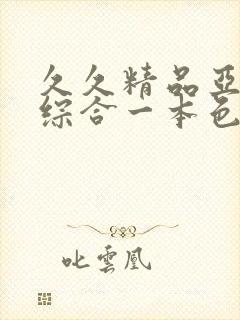 久久精品亞
綜合一本色
叱雲凰